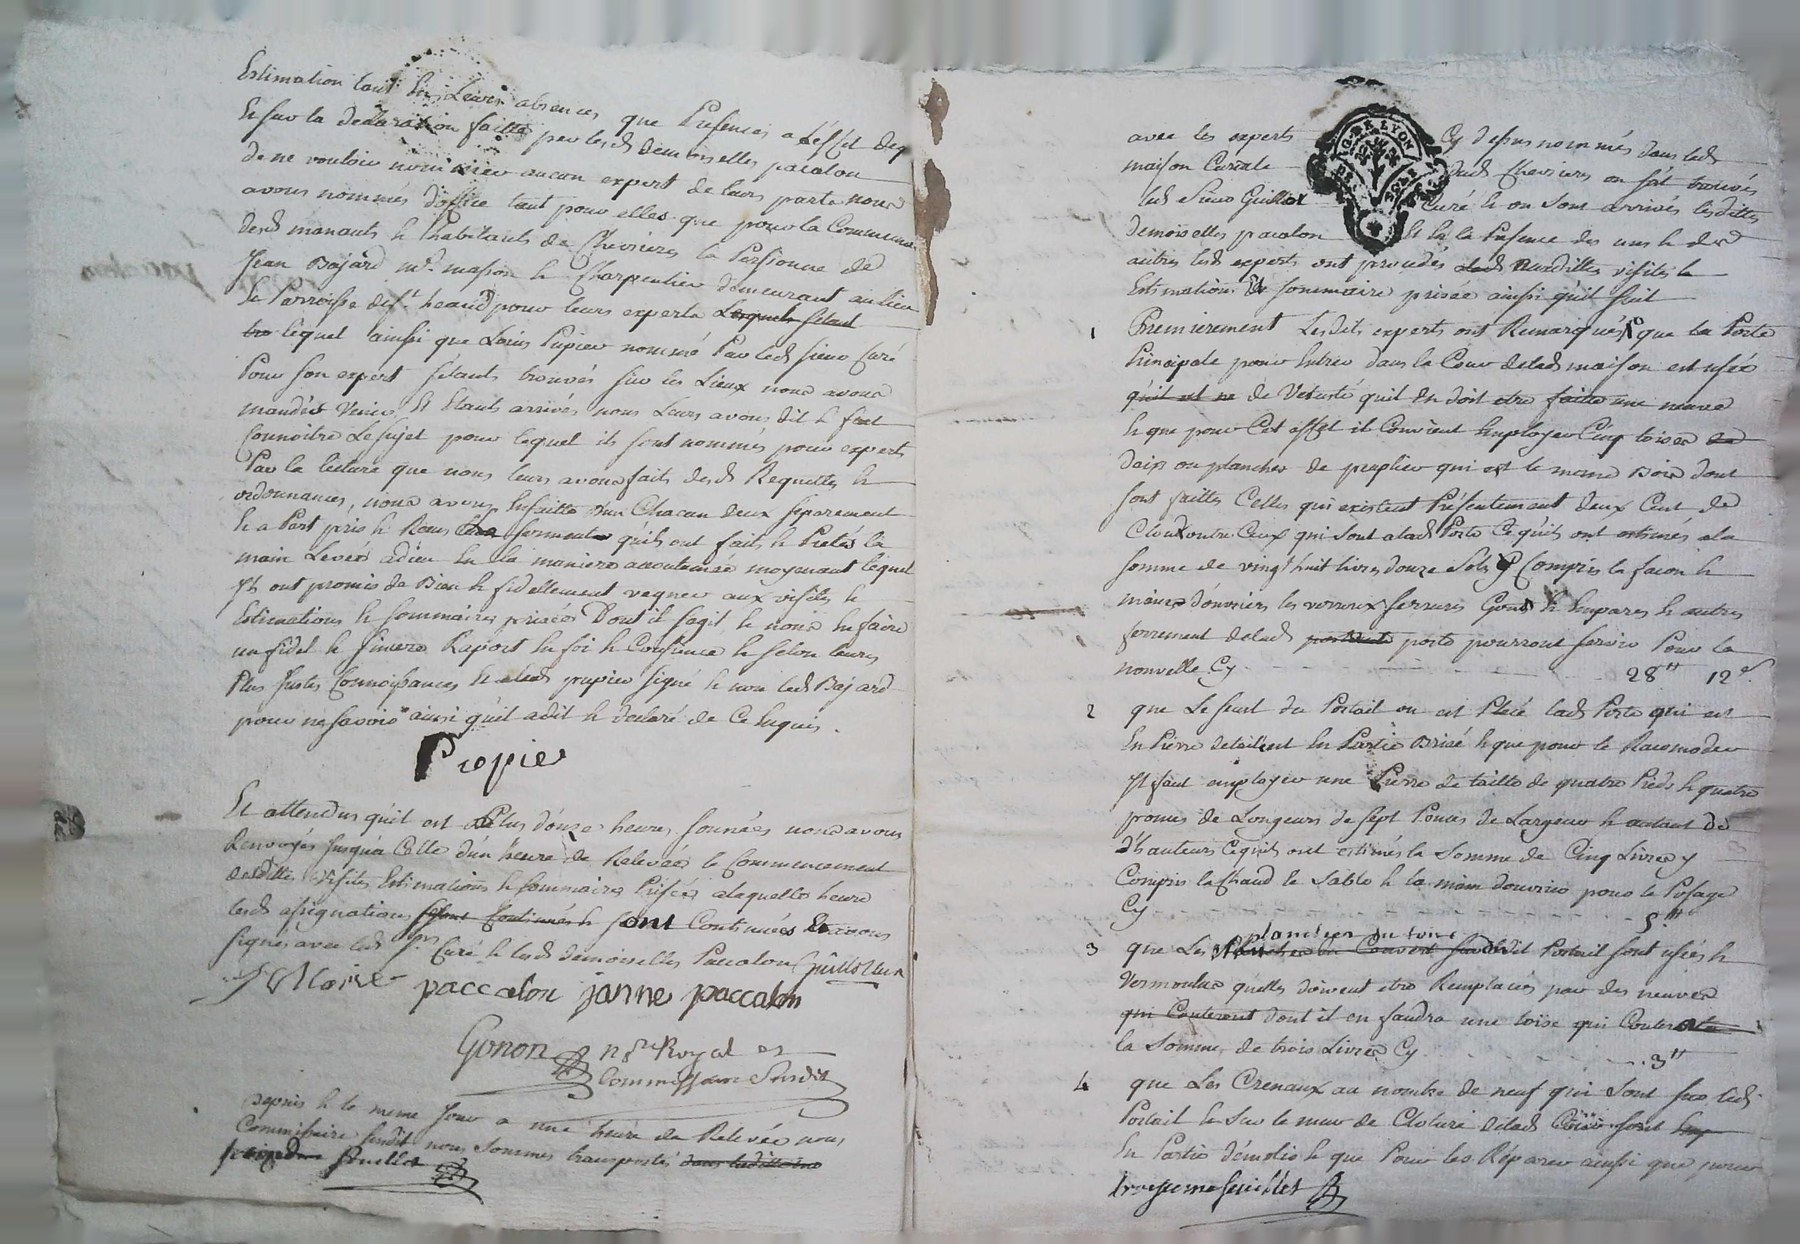 Estimation tant en Leurs absences que Presences a L'effet de
Et sur la declaration faitte par lesd demoiselles pacalon
de ne vouloir nommer aucun expert de leurs parts nous
avons nommés d'office tant pour elles que pour la Commune
desd manants & habitants de Chevrieres la Personne de
Jean Bajard me. masson & Charpentier demeurant au lieu
& Parroisse de st heand pour leurs experts Lesquels s'étant
lequel ainsi que Louis Pupier nommé Par led sieur Curé
Pour son expert s'étants trouvés sur les Lieux nous avons
mandés Venir, Et Etants arrivés nous Leurs avons dit & fait
Connoitre Le sujet pour lequel ils sont nommés pour experts
Par la lecture que nous leurs avons faits desd Requettes &
ordonnances, nous avons Ensuitte d'un Chacun deux séparement
& a Part pris & Recu serment qu'ils ont faits & Pretés la
main Levée a dieu En la maniere accoutumée moyenant lequel
Ils ont promis de Bien & fidellement vaquer aux visites &
Estimations & sommaires prisées Dont il s'agit & nous En faire
un fidel & sincere Raport En foi & Consience & selon leurs
Plus Justes Connoissances & led pupier signé & non led Bajard
pour ne savoir ainsi qu'il a dit & declaré de Ce Enquis.
Pupier
Et attendus qu'il est Plus d'onze heures sonnées nous avons
Renvoyés Jusqu'a Celle d'un heure de Relevée le Commencement
desdittes visites Estimations & sommaires Prisées a laquelle heure
lesd assignations sont Continuées & avons
signés avec led sr. Curé & lesd demoiselles Paccalon Guilloux
paccalon janne paccalon
Gonon nre Royal et
Commissaire Susdit
Depuis & le meme Jour a une heure de Relevée nous
Commissaire susdit nous sommes transportés dans laditte
feuillet
avec les experts Cy dessus nommés dans lad
maison Curiale dud Chevrieres ou s'est trouvés
led sieur Guilloux Curé & ou sont arrivés lesdittes
demoiselles pacalon Et En la Presence des uns & des
autres lesd experts ont procédés auxdittes visites &
Estimations & sommaire prisée ainsi qu'il suit
1 Premierement Lesdits experts ont Remarqués 1o que La Porte
Principale pour Entrer dans la Cour delad maison est usée
qu'il est ne de Vetusté qu'il En doit etre faitte une neuve
& que pour Cet effet il Convient Employer Cinq toises
d'aix ou planches de peuplier qui est le meme Bois dont
sont faittes Celles qui existent Présentement deux Cent de
Cloux outre Ceux qui sont a lad Porte Ce qu'ils ont estimés a la
somme de vingt huit livres douze sols y Compris la facon &
mains d'ouvriers les verroux serrures Gonds & Empares & autres
ferrement delad porte pourront servir Pour la
nouvelle Cy 28" 12s
2 que Le seuil du Portail ou est Placé lad Porte qui est
En Pierre detaille est En Partie Brisé & que pour le Racomoder
Il faut employer une Pierre de taille de quatre Pieds & quatre
pouces de Longeurs de sept Pouces de Largeur & autant de
d'hauteurs Ce qu'ils ont estimés la Somme de Cinq Livres y
Compris la Chaud le Sable & la main d'ouvrier pour le Posage
Cy 5"
3 que Les planches du toit Portail sont usées &
Vermoulues qu'elles doivent etre Remplacées par des neuves
qui Couteront dont il en faudra une toise qui Coutera
la Somme de trois Livres Cy 3"
4 que Les Crenaux au nombre de neuf qui sont sur led
Portail & sur le mur de Cloture delad Cour sont
En Partie démolis & que Pour les Réparer aussi que pour
troisieme feuillet